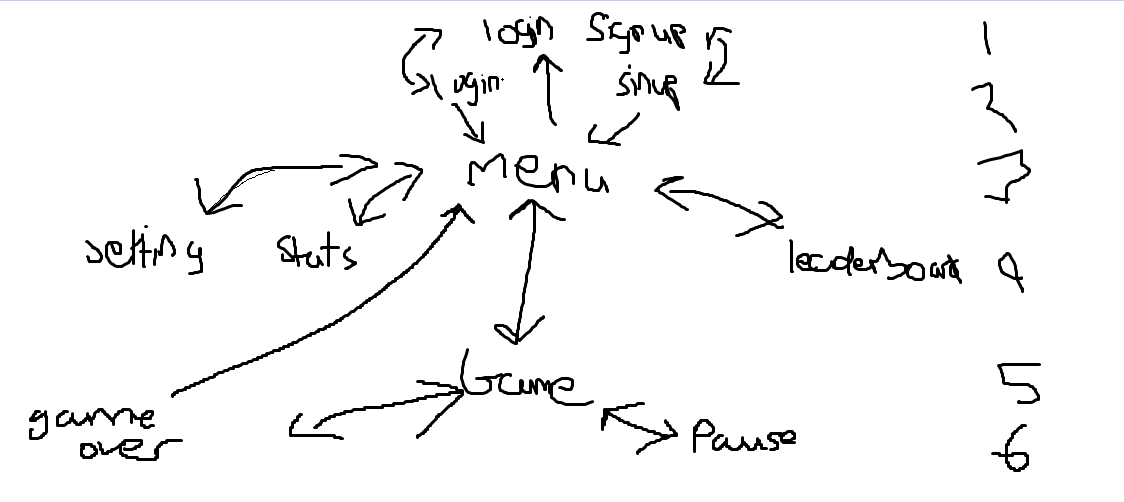 login Signup 1
login sinup 2
menu 3
setting stats leaderboard 4
Game 5
game over Pause 6